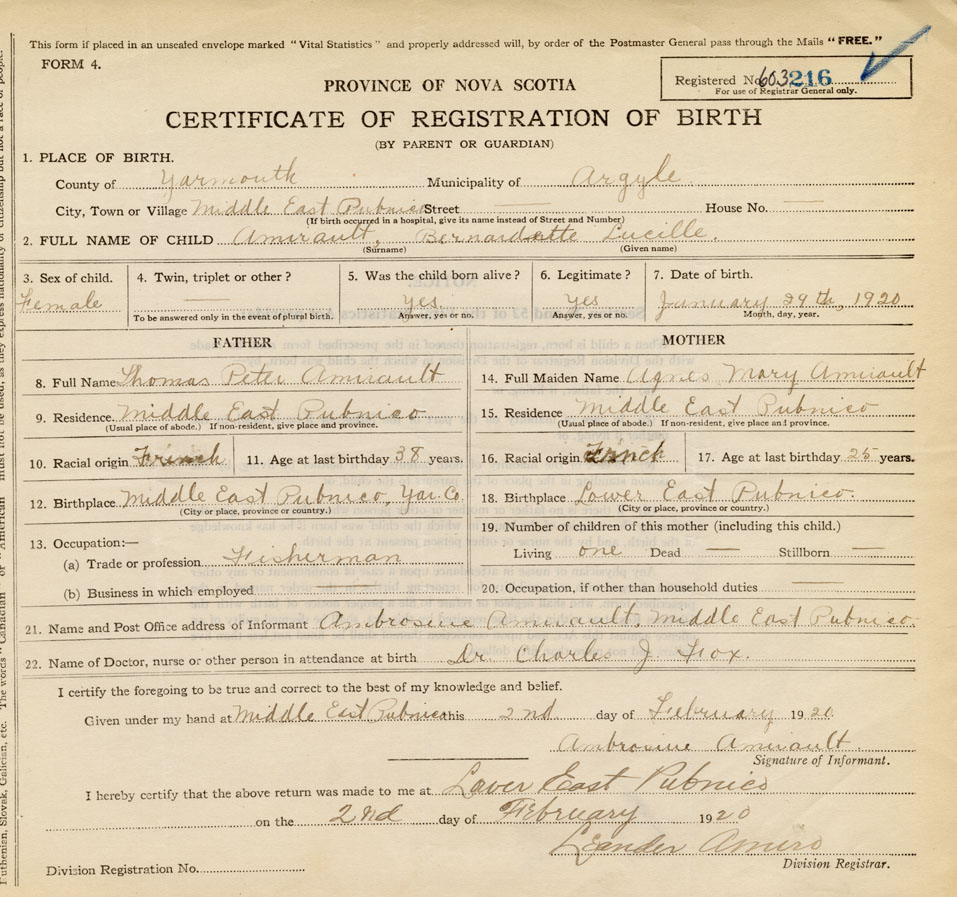 This form if placed in an unsealed envelope marked "Vital Statistics" and properly addressed will, by order of the Postmaster General pass through the Mails "FREE."
FORM 4.
Registered No. 603216
For use of Registrar General only.
PROVINCE OF NOVA SCOTIA
CERTIFICATE OF REGISTRATION OF BIRTH
(BY PARENT OR GUARDIAN)
1. PLACE OF BIRTH.
County of Yarmouth Municipality of Argyle
City, Town or Village Middle East Pubnico Street — House No. —
(If birth occurred in a hospital, give its name instead of Street and Number)
2. FULL NAME OF CHILD Amirault, Bernardette Lucille.
(Surname) (Given name)
3. Sex of child. 4. Twin, triplet or other? 5. Was the child born alive? 6. Legitimate? 7. Date of birth.
Female — Yes Yes January 29th, 1920
To be answered only in the event of plural birth. Answer, yes or no. Answer, yes or no. Month, day, year.
FATHER MOTHER
8. Full Name Thomas Peter Amirault 14. Full Maiden Name Agnes Mary Amirault
9. Residence Middle East Pubnico 15. Residence Middle East Pubnico
(Usual place of abode.) If non-resident, give place and province. (Usual place of abode.) If non-resident, give place and province.
10. Racial origin French 11. Age at last birthday 38 years. 16. Racial origin French 17. Age at last birthday 25 years.
12. Birthplace Middle East Pubnico, Yar. Co. 18. Birthplace Lower East Pubnico.
(City or place, province or country.) (City or place, province or country.)
13. Occupation:— 19. Number of children of this mother (including this child.)
(a) Trade or profession Fisherman Living one Dead — Stillborn —
(b) Business in which employed — 20. Occupation, if other than household duties —
21. Name and Post Office address of Informant Ambrosine Amirault, Middle East Pubnico.
22. Name of Doctor, nurse or other person in attendance at birth Dr. Charles J. Fox.
I certify the foregoing to be true and correct to the best of my knowledge and belief.
Given under my hand at Middle East Pubnico this 2nd day of February 1920
Ambrosine Amirault.
Signature of Informant.
I hereby certify that the above return was made to me at Lower East Pubnico
on the 2nd day of February 1920
Leander Amiro
Division Registration No. Division Registrar.